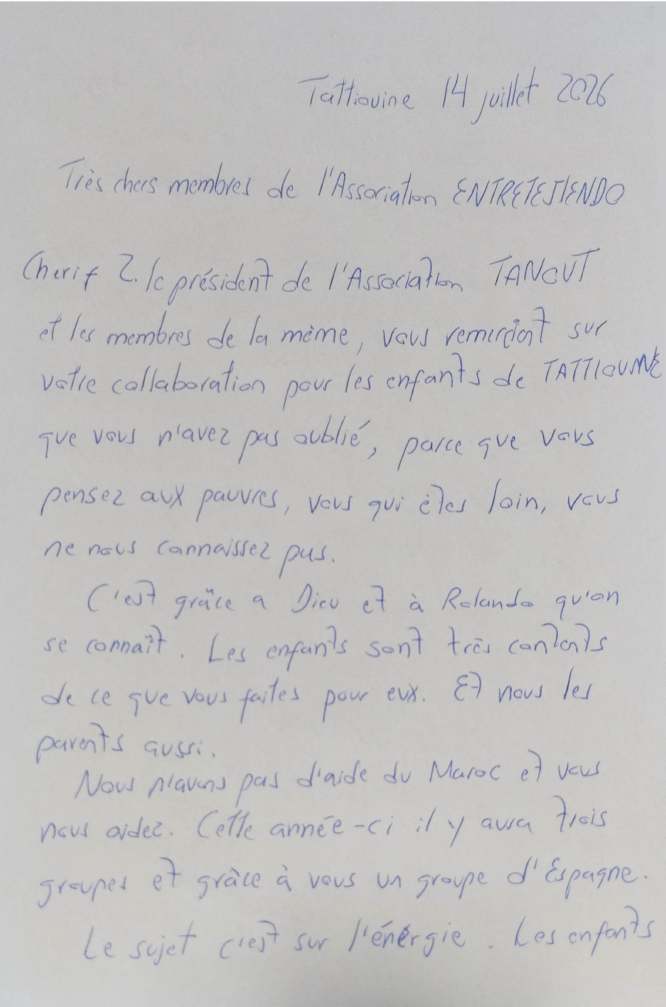 Tattiouine 14 juillet 2026
Très chers membres de l'Association ENTRETEJIENDO
Cherif Z. le président de l'Association TANOUT
et les membres de la même, vous remerciont sur
votre collaboration pour les enfants de TATTIOUINE
que vous n'avez pas oublié, parce que vous
pensez aux pauvres, vous qui êtes loin, vous
ne nous connaissez pas.
C'est grâce a Dieu et à Rolando qu'on
se connaît. Les enfants sont très contents
de ce que vous faites pour eux. Et nous les
parents aussi.
Nous n'avons pas d'aide du Maroc et vous
nous aidez. Cette année-ci il y aura trois
groupes et grâce à vous un groupe d'Espagne.
Le sujet c'est sur l'énérgie. Les enfants